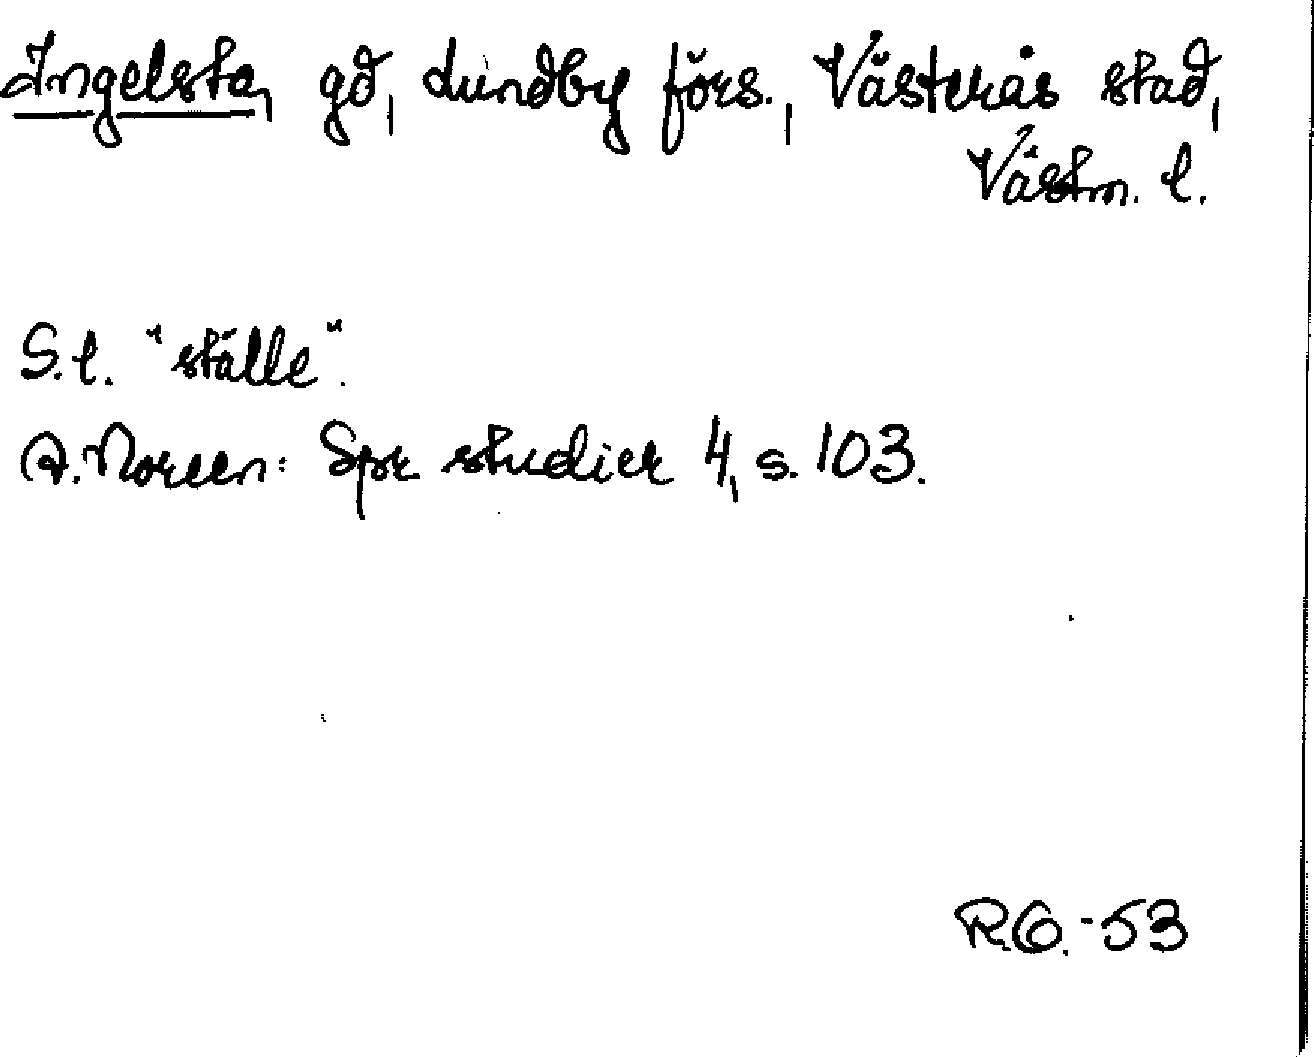 Ingelsta, gd, Lundby förs., Västerås stad,
Västm. l.
S.l. "ställe".
A. Noreen: Spr studier 4, s. 103.
R.G.-53